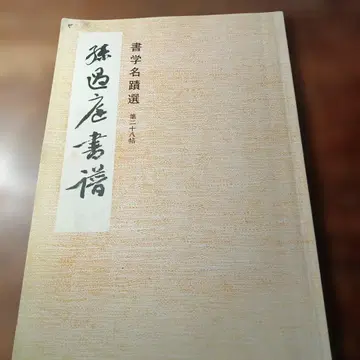 書学名蹟選
第二十八帖
孫過庭書譜